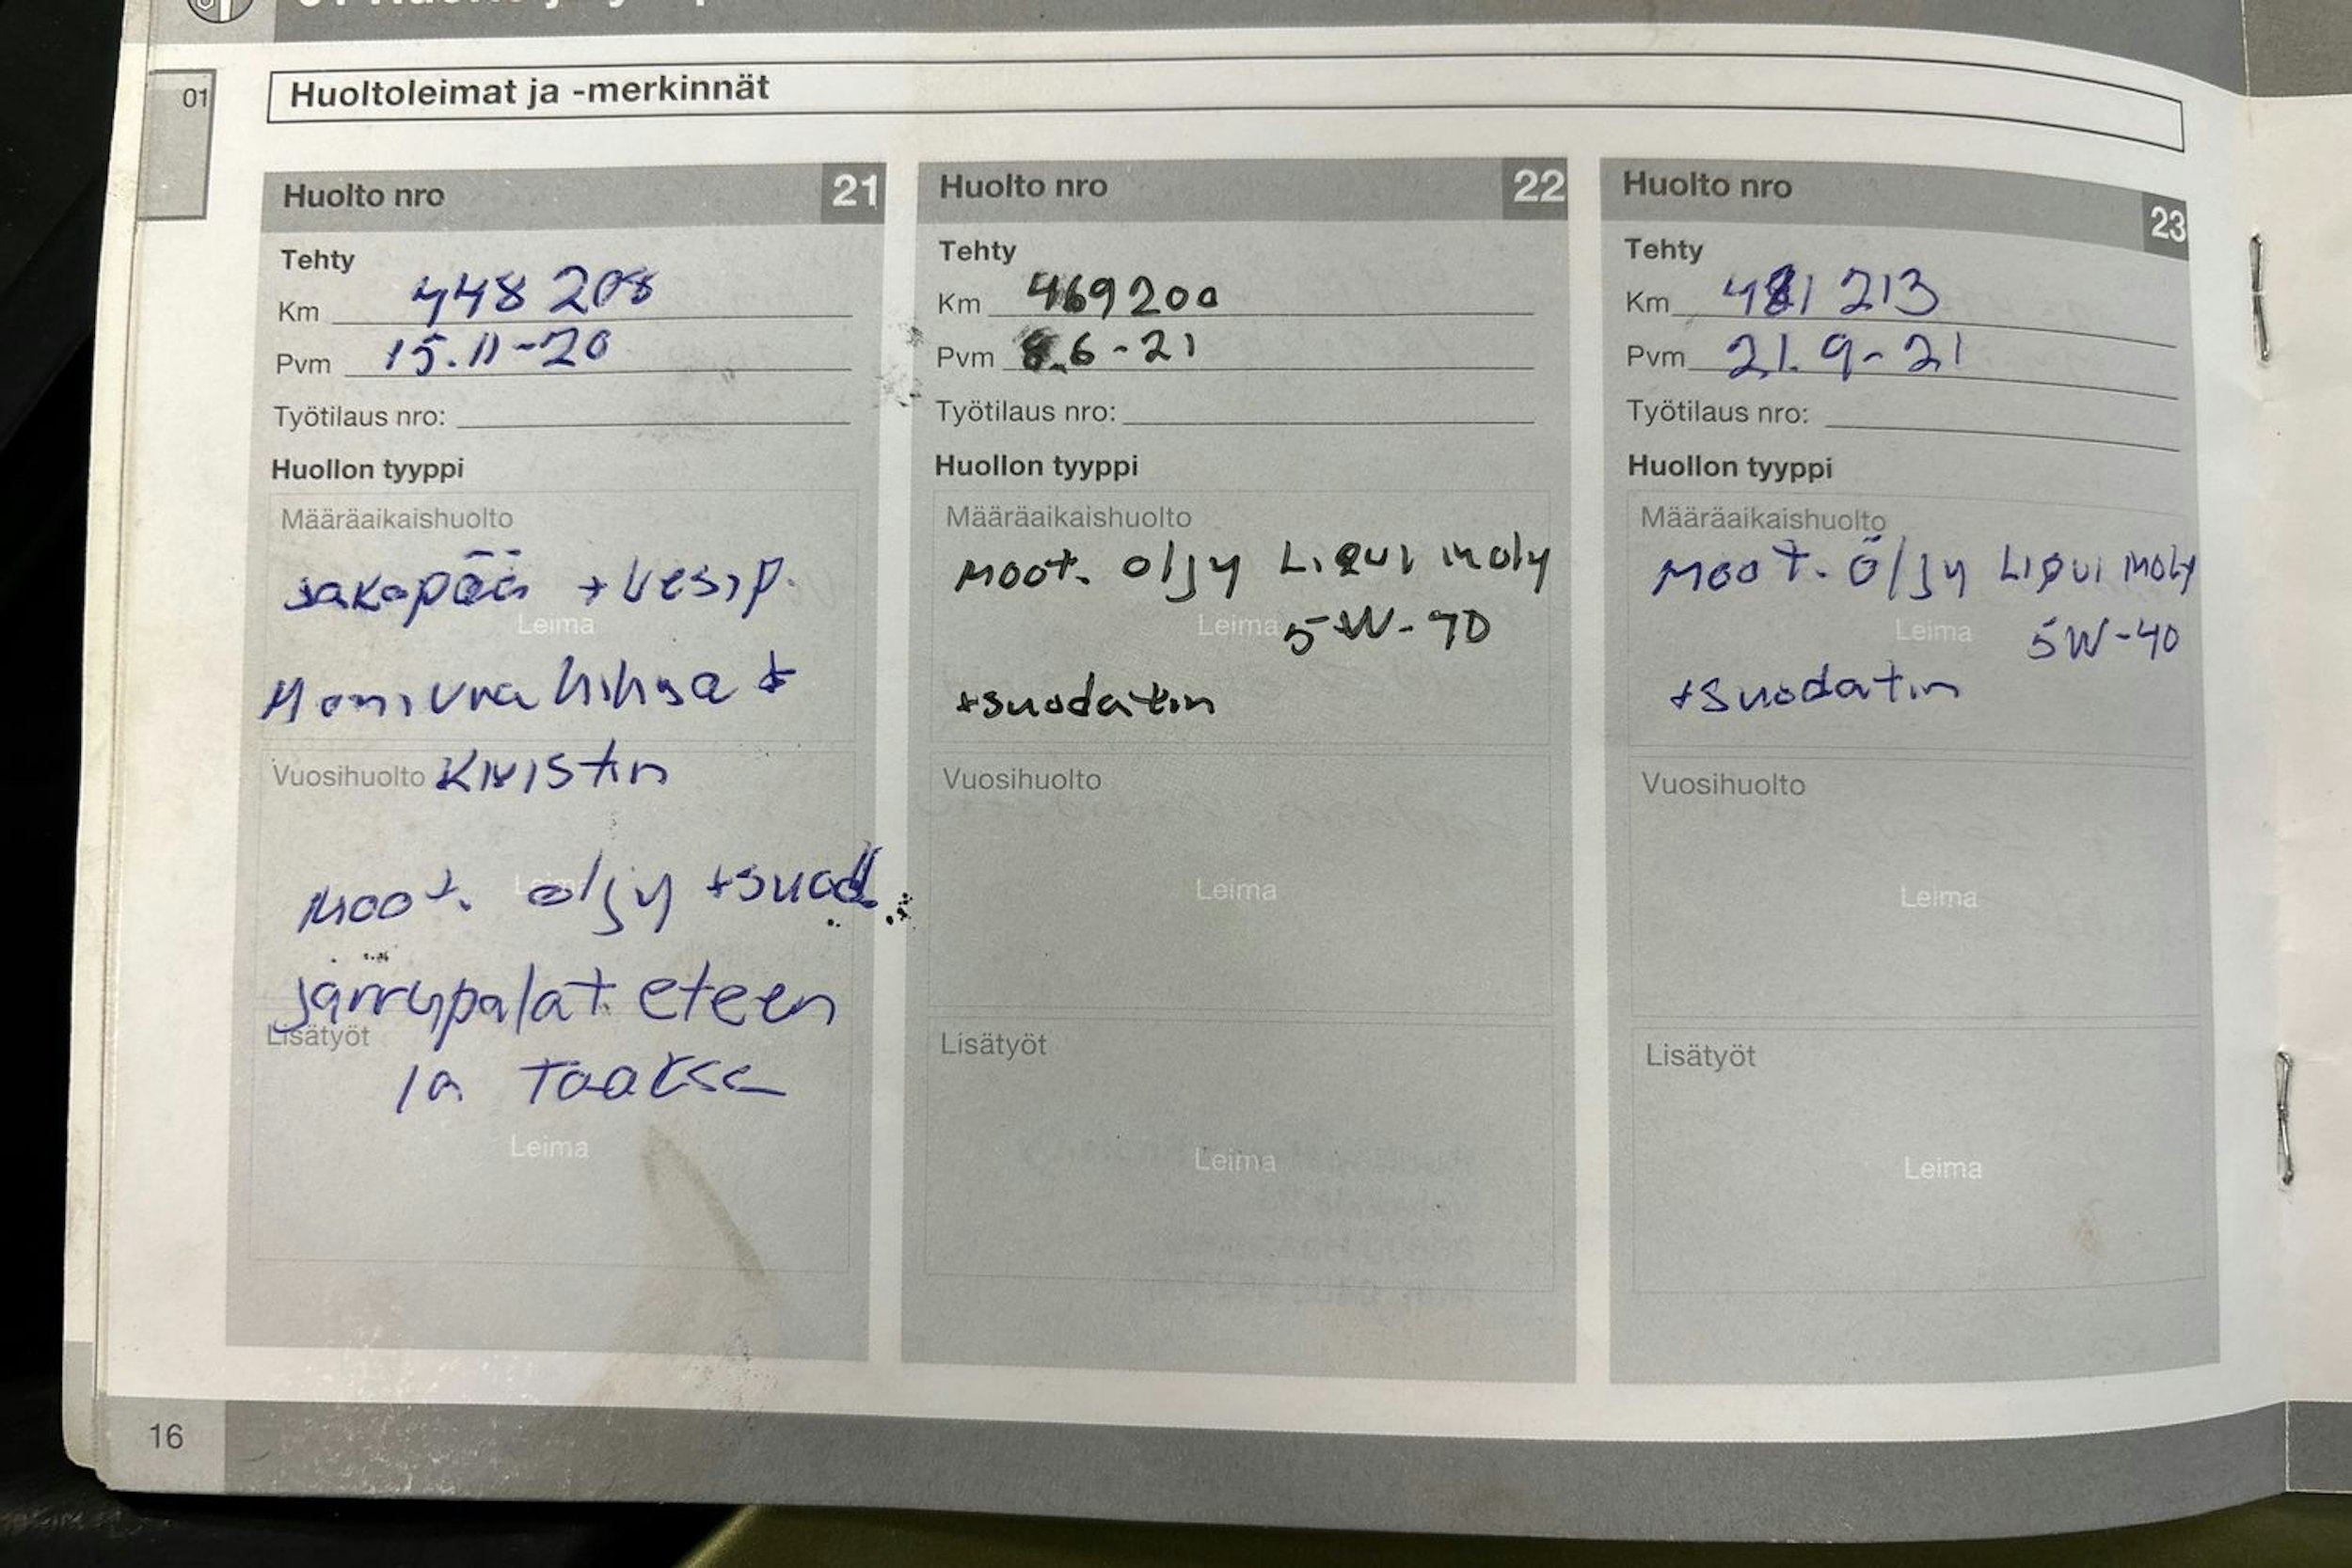 01
Huoltoleimat ja -merkinnät
Huolto nro 21
Tehty
Km 448 208
Pvm 15.11-20
Työtilaus nro:
Huollon tyyppi
Määräaikaishuolto
jakopää + vesip.
Leima
Moniurahihna +
Vuosihuolto Kiristin
Moot. öljy + suod.
Leima
jarrupalat eteen
Lisätyöt
ja taakse
Leima
Huolto nro 22
Tehty
Km 469200
Pvm 8.6-21
Työtilaus nro:
Huollon tyyppi
Määräaikaishuolto
Moot. oljy Liqui moly
Leima 5W-40
+suodatin
Vuosihuolto
Leima
Lisätyöt
Leima
Huolto nro 23
Tehty
Km 481 213
Pvm 21.9-21
Työtilaus nro:
Huollon tyyppi
Määräaikaishuolto
Moot. öljy Liqui moly
Leima 5W-40
+suodatin
Vuosihuolto
Leima
Lisätyöt
Leima
16